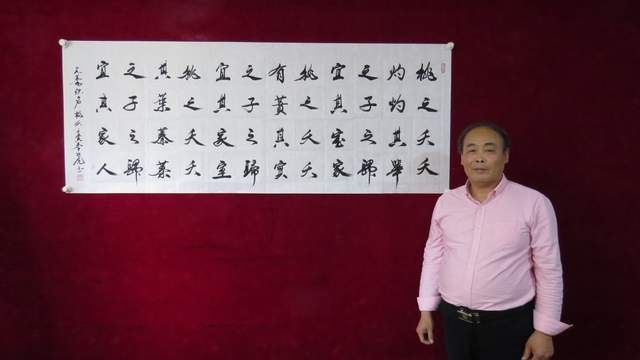 桃之夭夭
灼灼其華
之子于歸
宜其室家
桃之夭夭
有蕡其實
之子于歸
宜其家室
桃之夭夭
其葉蓁蓁
之子于歸
宜其家人